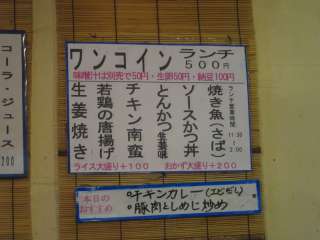 ワンコイン ランチ
500円
味噌汁は別売で50円・生卵50円・納豆100円
ランチ営業時間
11:30
〜
2:00
焼き魚(さば)
ソースかつ丼
とんかつ生姜味
チキン南蛮
若鶏の唐揚げ
生姜焼き
ライス大盛り+100 おかず大盛り+200
本日の
おすすめ
・チキンカレー(エビだし)
・豚肉としめじ炒め
コーラ・ジュース
200